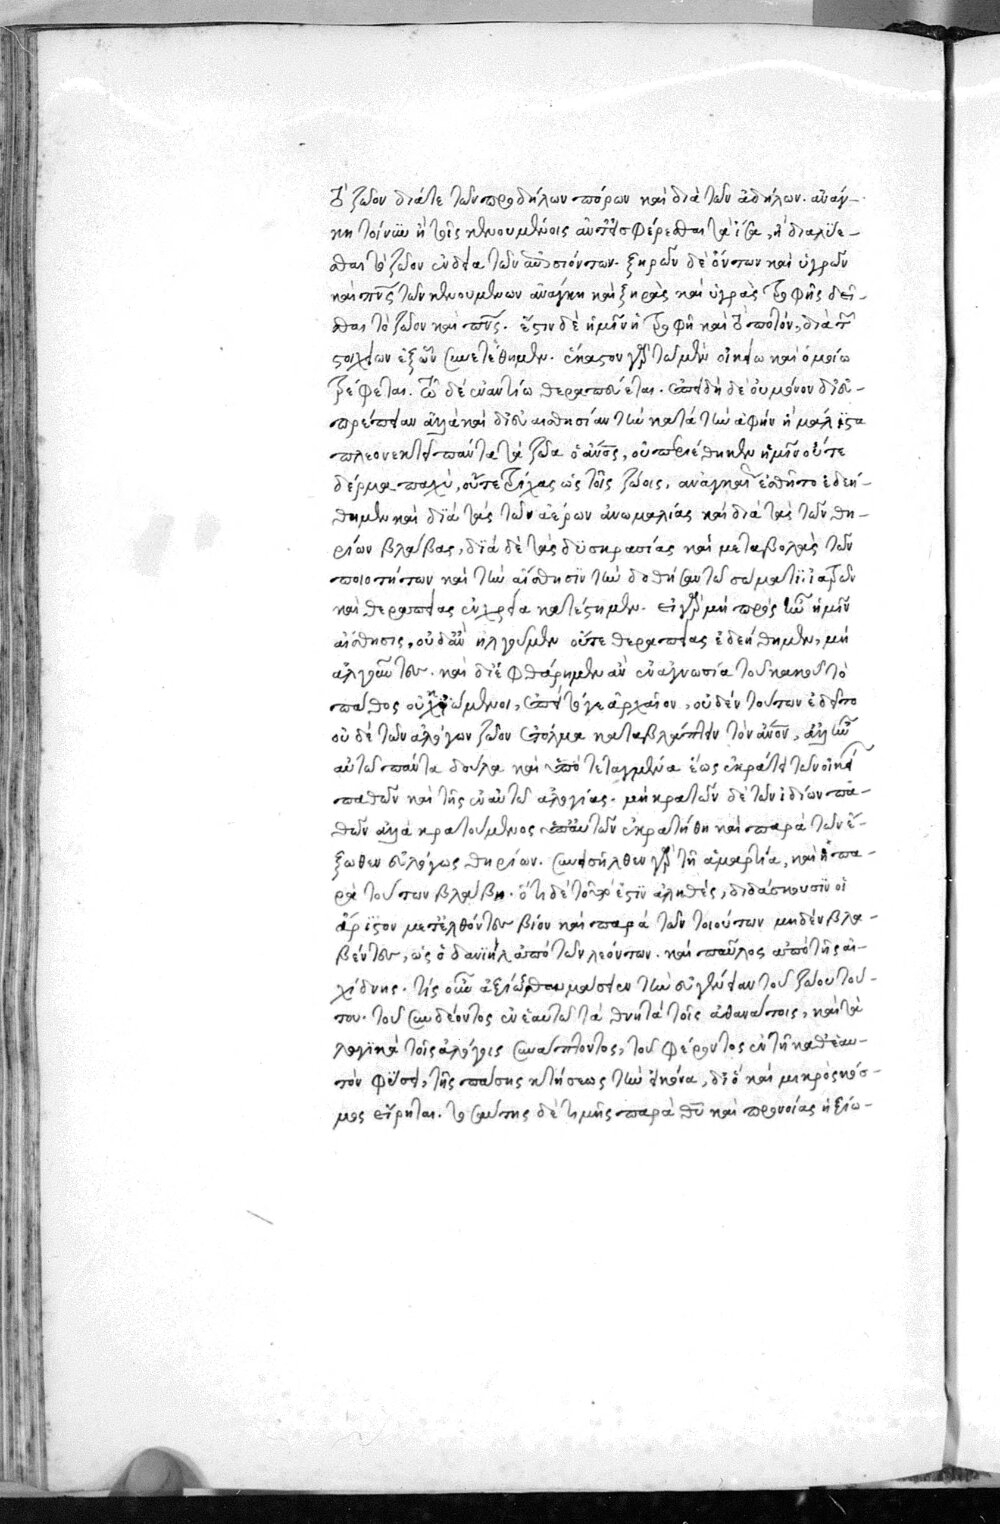 τὸ ζῶον διά τε τῶν προδήλων πόρων καὶ διὰ τῶν ἀδήλων. ἀνάγ-
κη τοίνυν ἢ τοῖς κενουμένοις ἀντεισφέρεσθαι τὰ ἴσα, ἢ διαλύε-
σθαι τὸ ζῶον ἐνδεία τῶν ἐπεισιόντων. ξηρῶν δὲ ὄντων καὶ ὑγρῶν
καὶ πνς τῶν κενουμένων ἀνάγκη καὶ ξηρᾶς καὶ ὑγρᾶς τροφῆς δεῖ-
σθαι τὸ ζῶον καὶ πνς. ἔστιν δὲ ἡμῖν ἡ τροφὴ καὶ τὸ ποτόν, διὰ τ
στοιχείων ἐξ ὧν συνετέθημεν. ἕκαστον γὰρ τῶ μὲν οἰκείω καὶ ὁμοίω
τρέφεται. τῶ δὲ ἐναντίω θεραπεύεται. ἐπειδὴ δὲ οὐ μόνον διὰ
πρέπειαν ἀλλὰ καὶ διὰ αἰσθησίαν τὴν κατὰ τὴν ἁφὴν ἣ μάλιστα
πλεονεκτεῖ πάντα τὰ ζῶα ὁ ἄνος, οὐ περιέθηκεν ἡμῖν οὔτε
δέρμα παχὺ, οὔτε τρίχας ὡς τοῖς ζώοις, ἀναγκαί ἐσθῆτος ἐδεή-
θημεν καὶ διὰ τὰς τῶν ἀέρων ἀνωμαλίας καὶ διὰ τὰς τῶν θη-
ρίων βλάβας, διὰ δὲ τὰς δυσκρασίας καὶ μεταβολὰς τῶν
ποιοτήτων καὶ τὴν αἴσθησιν τὴν δοθεῖσαν τῶ σώματι. ἰατρῶν
καὶ θεραπείας ἐν χρεία κατέστημεν. εἰ γὰρ μὴ προσῆν ἡμῖν
αἴσθησις, οὐδ' ἂν ἠλγοῦμεν οὔτε θεραπείας ἐδεήθημεν, μὴ
ἀλγοῦντες. καὶ διεφθάρημεν ἂν ἐν ἀγνωσία τοῦ κακοῦ τὸ
πάθος οὐκ ἰώμενοι, ἐπεὶ τό γε ἀρχαῖον, οὐδὲν τούτων ἐδεῖτο
οὐδὲ τῶν ἀλόγων ζῶον ἐτόλμα καταβλάπτειν τὸν ἄνον, ἀλλ' ἦν
αὐτῶ πάντα δοῦλα καὶ ὑποτεταγμένα ἕως ἐκράτει τῶν οἰκεί
παθῶν καὶ τῆς ἐν αὐτῶ ἀλογίας. μὴ κρατῶν δὲ τῶν ἰδίων πα-
θῶν ἀλλὰ κρατούμενος ὑπ' αὐτῶν ἐκρατήθη καὶ παρὰ τῶν ἔ-
ξωθεν εὐλόγως θηρίων. συνεισῆλθεν γὰρ τῆ ἁμαρτία, καὶ ἡ πα-
ρὰ τούτων βλάβη. ὅτι δὲ τοῦτό ἐστιν ἀληθές, διδάσκουσιν οἱ
ἄριστον μετελθόντες βίον καὶ παρὰ τῶν τοιούτων μηδὲν βλα-
βέντες, ὡς ὁ δανιὴλ ἀπὸ τῶν λεόντων. καὶ παῦλος ἀπὸ τῆς ἐ-
χίδνης. τίς οὖν ἀξίως θαυμάσειεν τὴν εὐγένειαν τοῦ ζώου τού-
του. τοῦ συνδέοντος ἐν ἑαυτῶ τὰ θνητὰ τοῖς ἀθανάτοις, καὶ τὰ
λογικὰ τοῖς ἀλόγοις συνάπτοντος, τοῦ φέροντος ἐν τῆ καθ' ἑαυ-
τὸν φύσει, τῆς πάσης κτήσεως τὴν εἰκόνα, διὸ καὶ μικρὸς κόσ-
μος εἴρηται. τοσαύτης δὲ τιμῆς παρὰ θυ καὶ προνοίας ἠξίω-